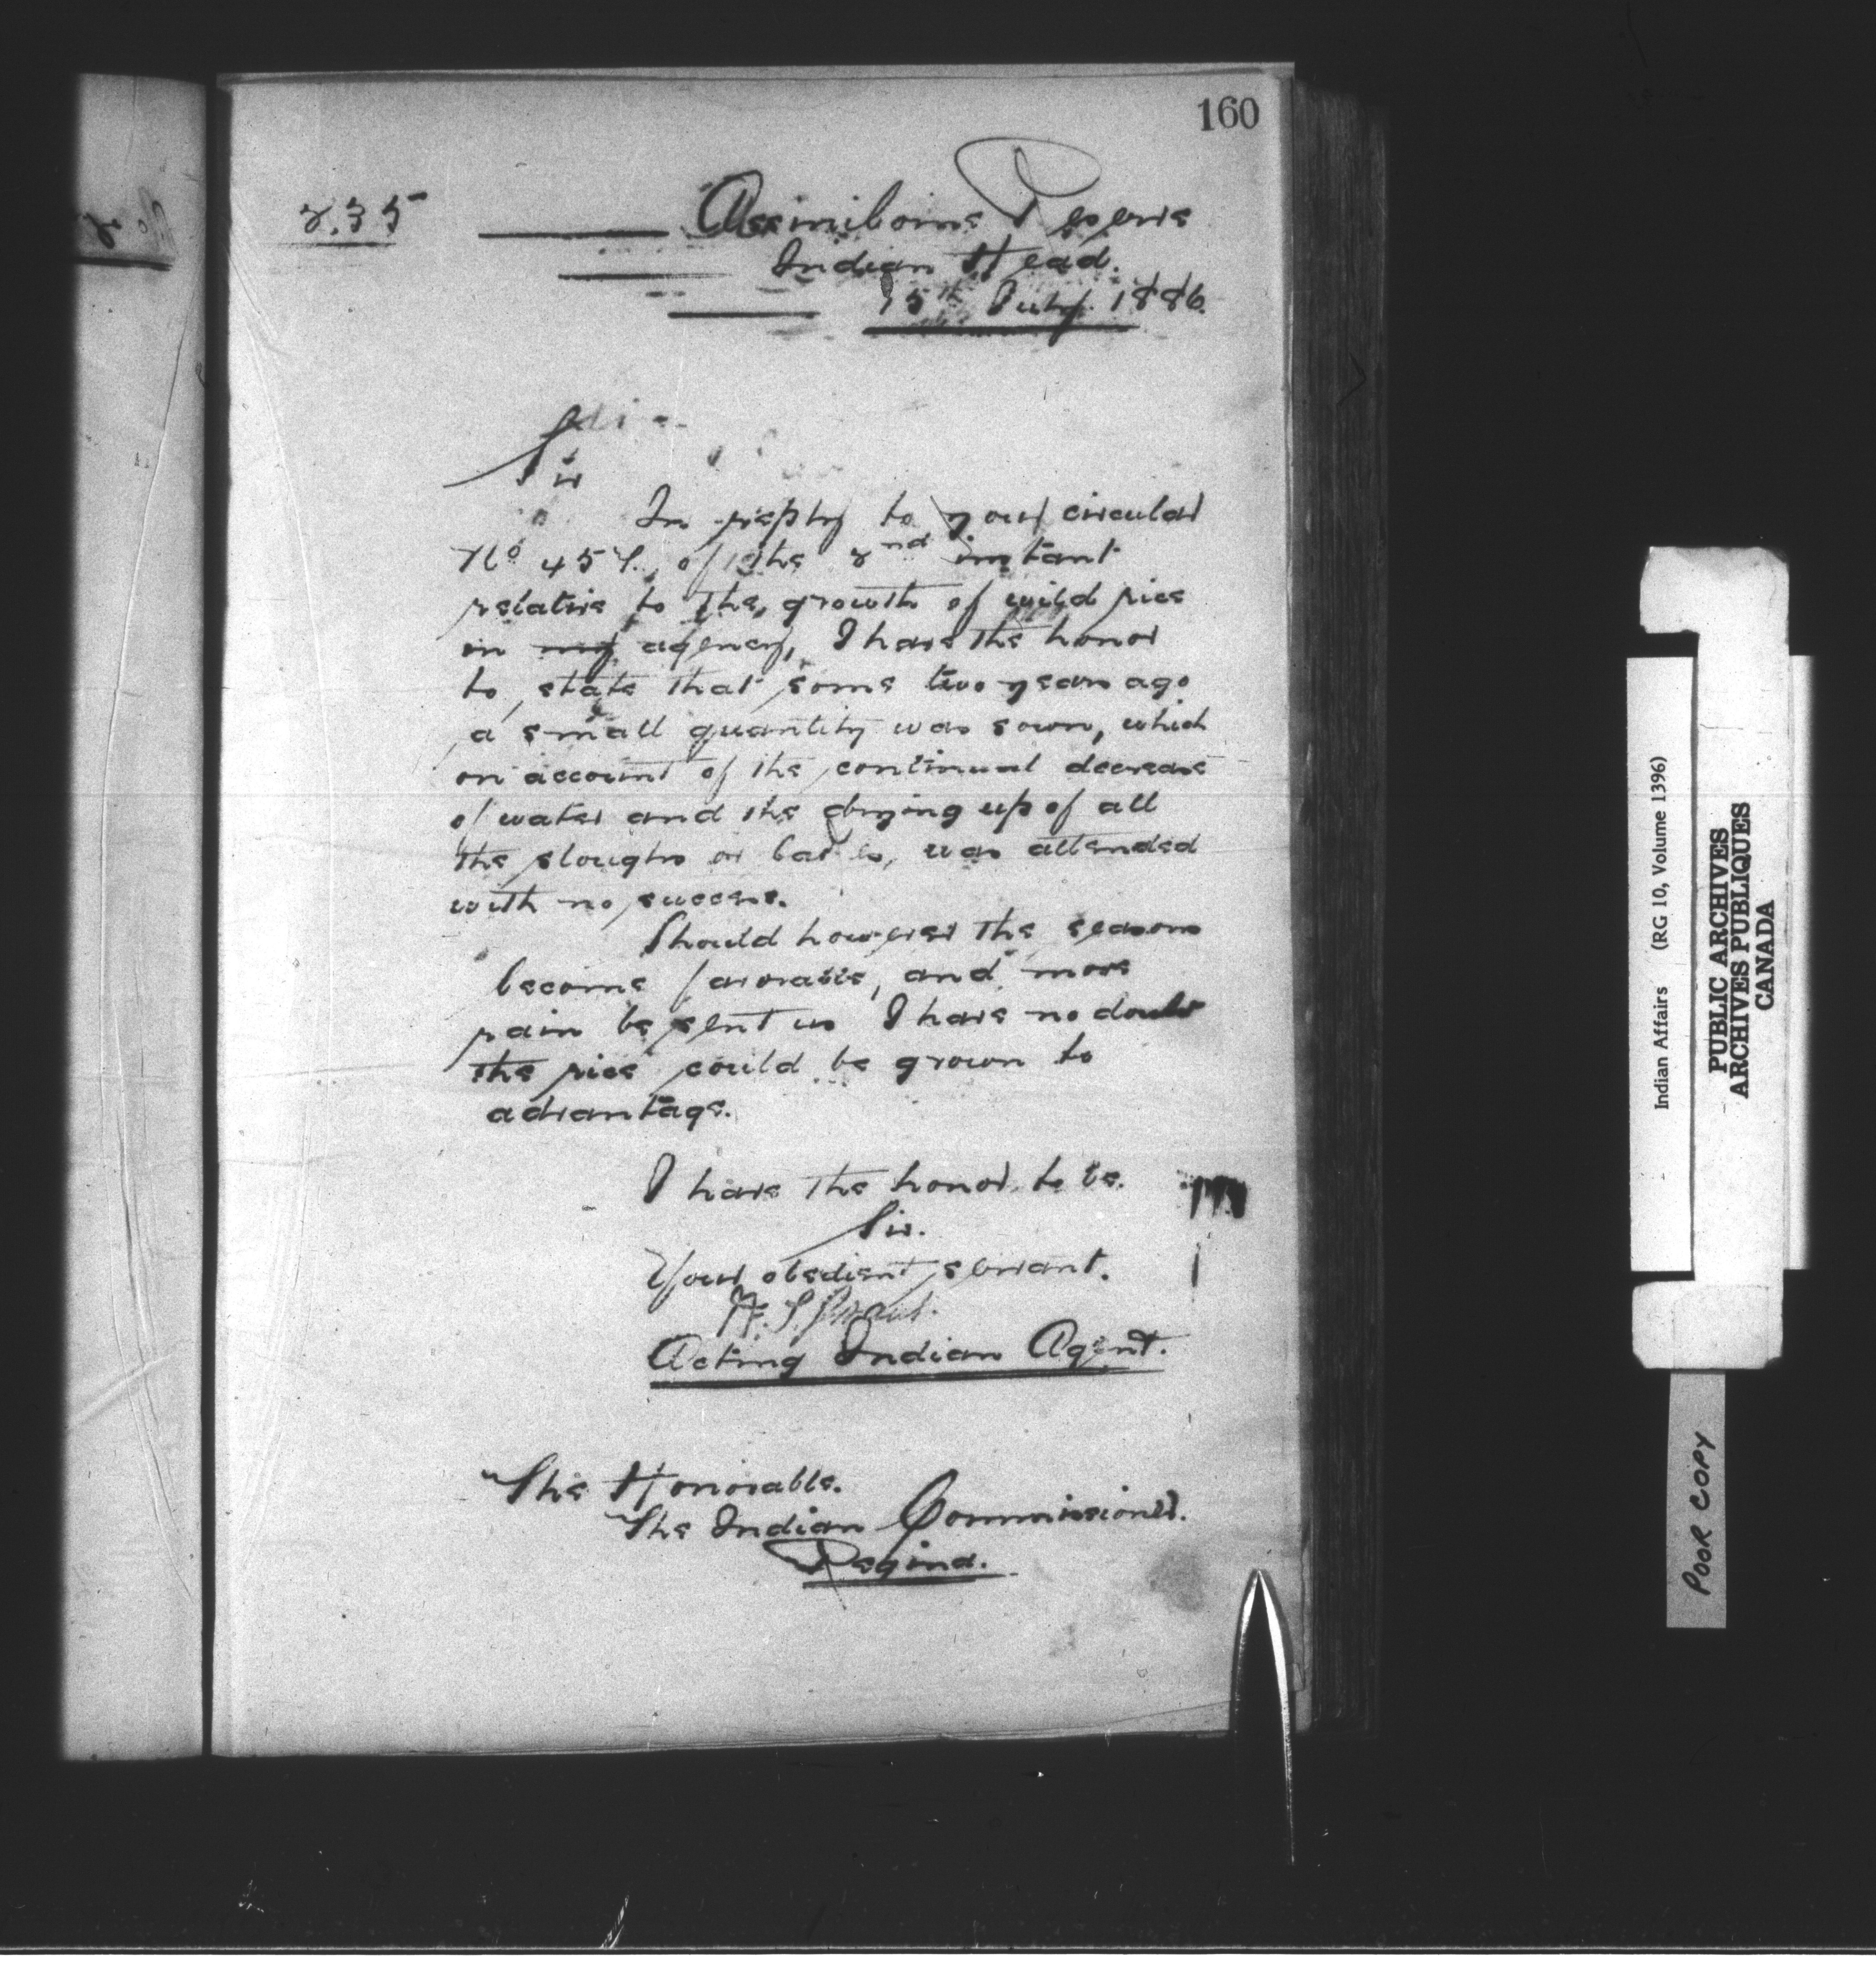 160
235
Assiniboine Reserve
Indian Head.
15th July. 1886.
Sir
In reply to your circular
No of the 2nd instant
relative to the growth of wild rice
in my agency, I have the honor
to state that some two years ago
a small quantity was sown, which
on account of the continual decrease
of water and the drying up of all
the sloughs or was attended
with no success.
Should however the seasons
become favorable, and more
rain be sent us I have no doubt
the rice could be grown to
advantage.
I have the honor to be.
Sir.
Your obedient servant.
Acting Indian Agent.
The Honorable.
The Indian Commissioner.
Regina.
Indian Affairs (RG 10, Volume 1396)
PUBLIC ARCHIVES
ARCHIVES PUBLIQUES
CANADA
POOR COPY